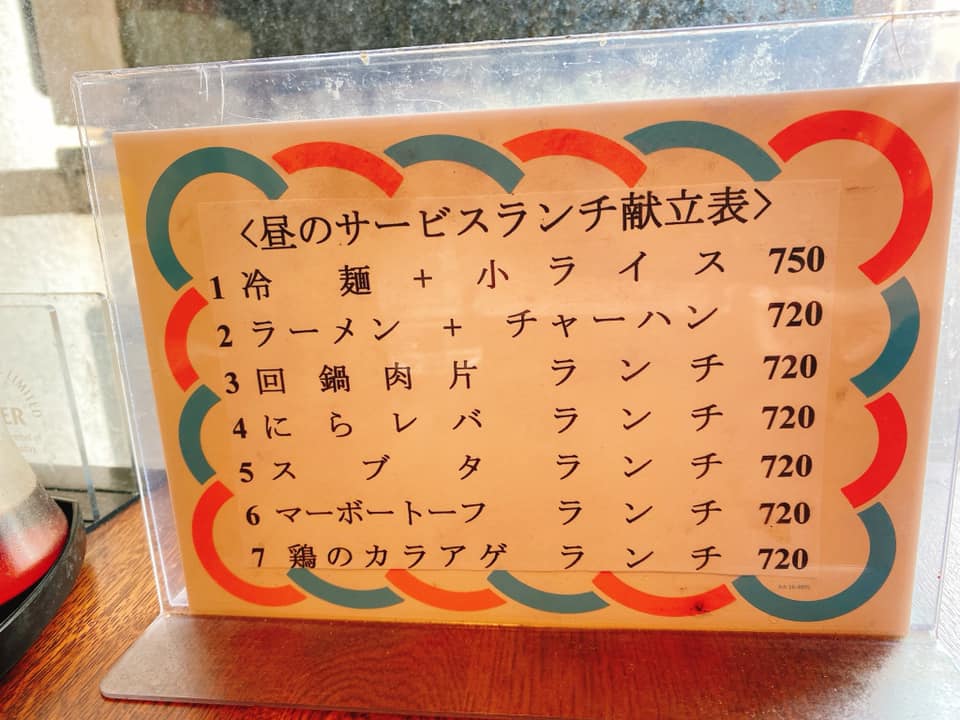 <昼のサービスランチ献立表>
1 冷麺 + 小ライス 750
2 ラーメン + チャーハン 720
3 回鍋肉片 ランチ 720
4 にらレバ ランチ 720
5 スブタ ランチ 720
6 マーボートーフ ランチ 720
7 鶏のカラアゲ ランチ 720
LIMITED